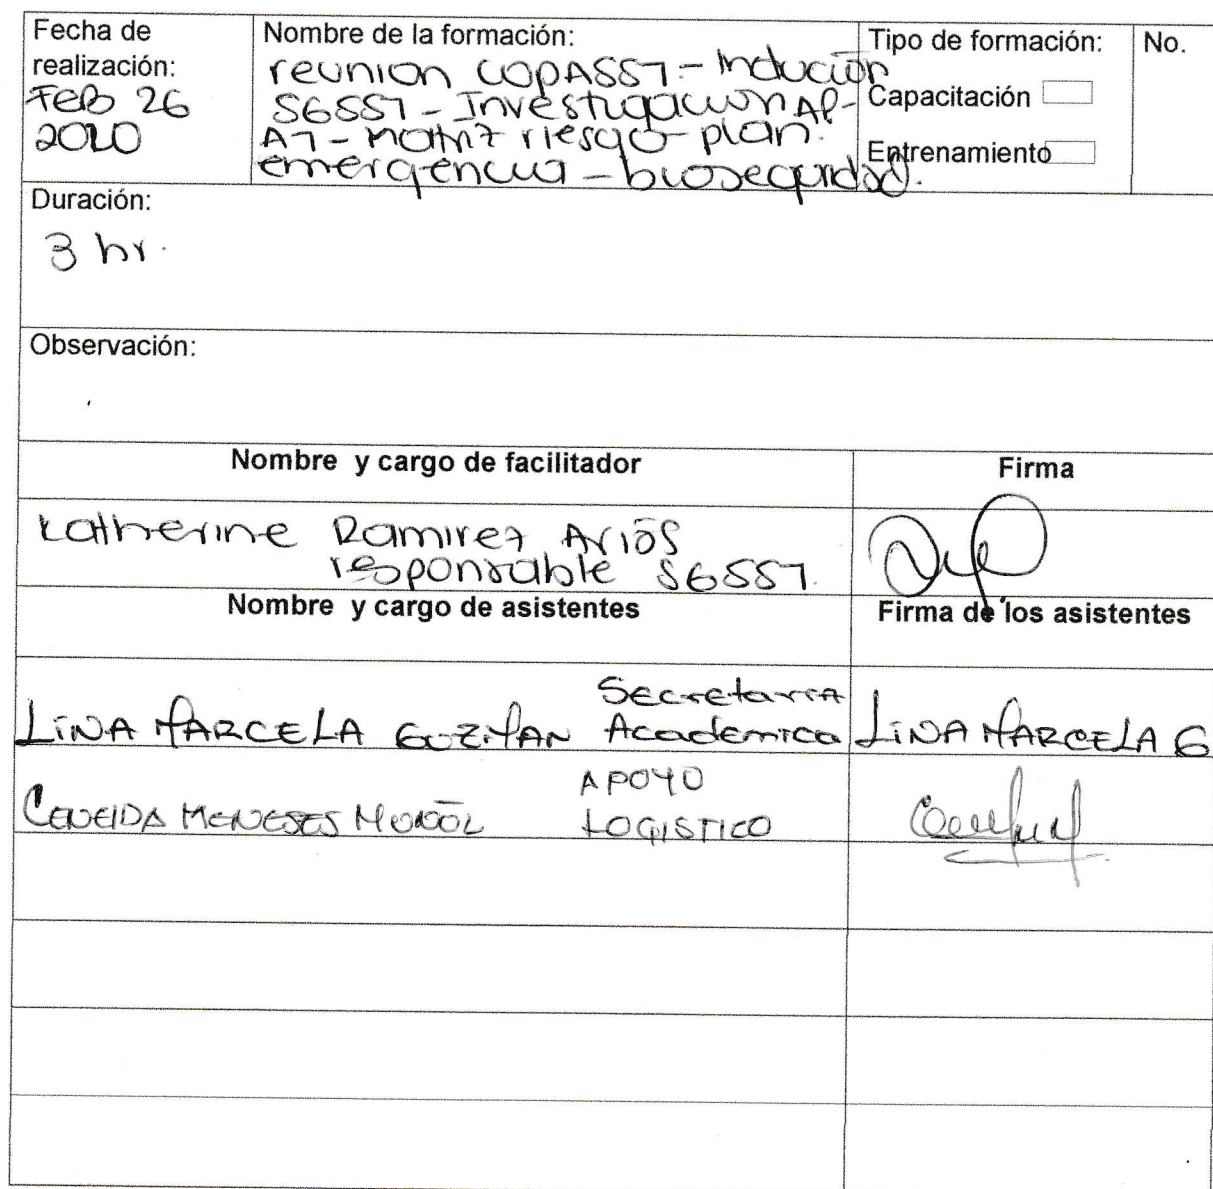 Fecha de
realización:
Feb 26
2020
Nombre de la formación:
reunion COPASST - Inducion
SGSST - Investigacion AP-
AT - matriz riesgo - plan.
emergencia - bioseguridad.
Tipo de formación:
Capacitación
Entrenamiento
No.
Duración:
3 hr.
Observación:
Nombre y cargo de facilitador
Firma
Katherine Ramirez Arios
responsable SGSST.
Nombre y cargo de asistentes
Firma de los asistentes
LiNA MARCELA GUZMAN Secretaria Academica
LiNA MARCELA G
CENEIDA MENESES
APOYO
LOGISTICO